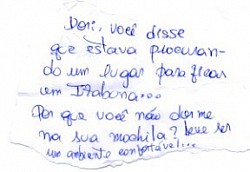 Dori, você disse
que estava procuran-
do um lugar para ficar
em Itabuna...
Por que você não dorme
na sua mochila? Deve ser
um ambiente confortável...